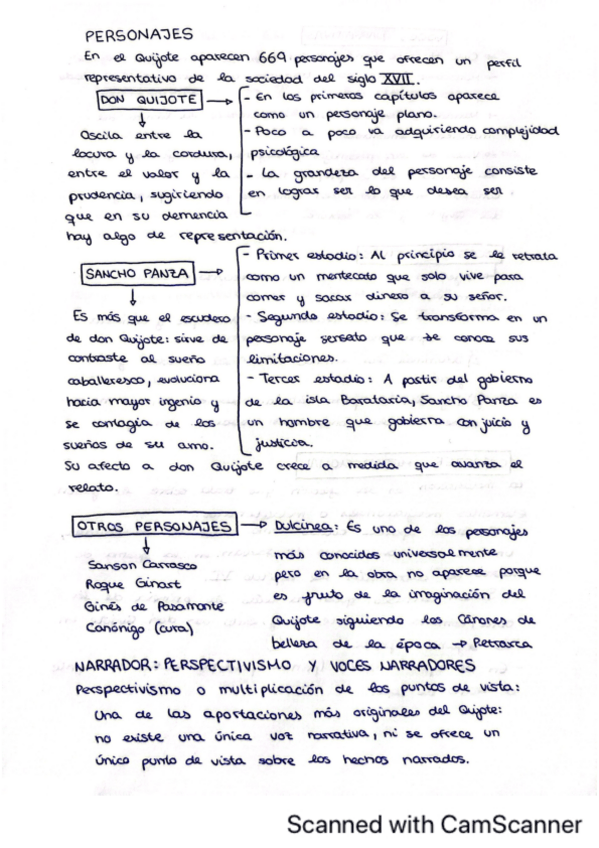 PERSONAJES
En el Quijote aparecen 669 personajes que ofrecen un perfil
representativo de la sociedad del siglo XVII.
DON QUIJOTE
Oscila entre la
locura y la cordura,
entre el valor y la
prudencia, sugiriendo
que en su demencia
hay algo de representación.
- En los primeros capítulos aparece
como un personaje plano.
- Poco a poco va adquiriendo complejidad
psicológica
- La grandeza del personaje consiste
en lograr ser lo que desea ser
SANCHO PANZA
Es más que el escudero
de don Quijote: sirve de
contraste al sueño
caballeresco, evoluciona
hacia mayor ingenio y
se contagia de los
sueños de su amo.
- Primer estadio: Al principio se le retrata
como un mentecato que solo vive para
comer y sacar dinero a su señor.
- Segundo estadio: Se transforma en un
personaje sensato que se conoce sus
limitaciones.
- Tercer estadio: A partir del gobierno
de la isla Barataria, Sancho Panza es
un hombre que gobierna con juicio y
justicia.
Su afecto a don Quijote crece a medida que avanza el
relato.
OTROS PERSONAJES
Sanson Carrasco
Roque Ginart
Ginés de Pasamonte
Canónigo (cura)
Dulcinea: Es uno de los personajes
más conocidos universalmente
pero en la obra no aparece porque
es fruto de la imaginación del
Quijote siguiendo los Cánones de
belleza de la época → Petrarca
NARRADOR: PERSPECTIVISMO Y VOCES NARRADORES
Perspectivismo o multiplicación de los puntos de vista:
Una de las aportaciones más originales del Quijote:
no existe una única voz narrativa, ni se ofrece un
único punto de vista sobre los hechos narrados.
Scanned with CamScanner